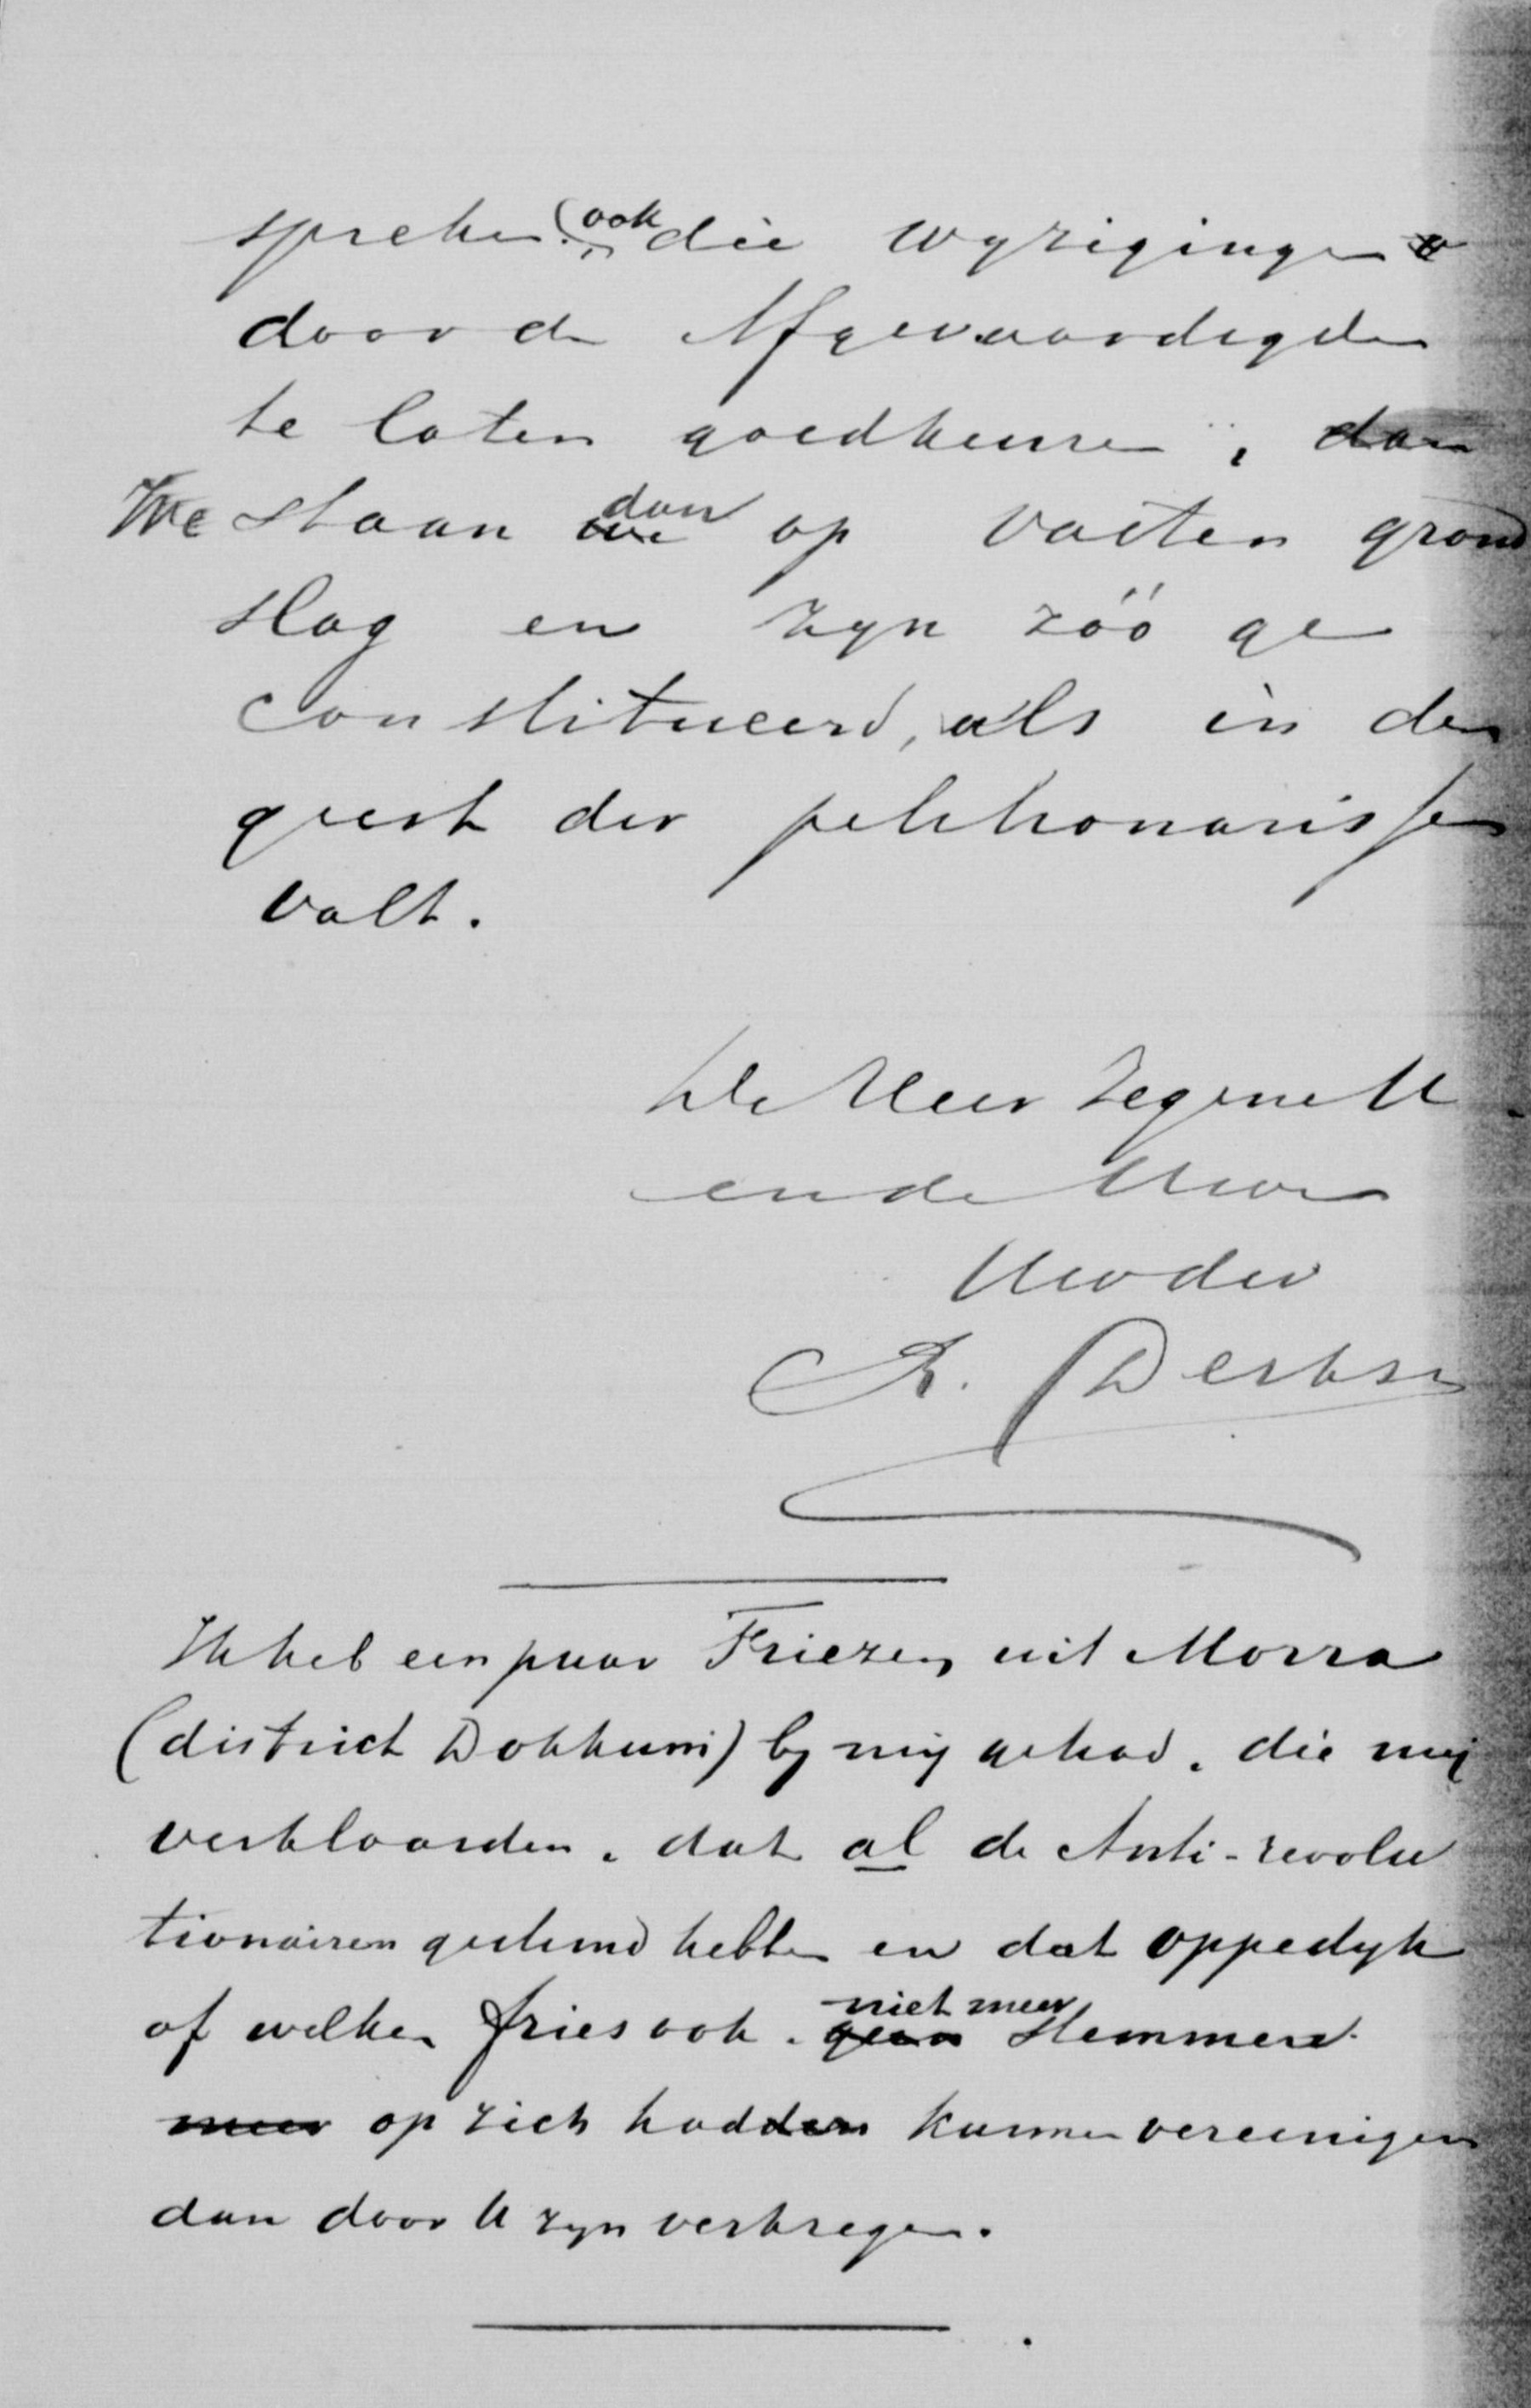 spreken. (ook die wyzigingen
door de Afgevaardigden
te laten goedkeuren, dan
We staan we dan op vasten grond
slag en zyn zóó ge
constitueerd, als in den
geest der petitionarissen
valt.
De Heer zegene U
en de Uwen
Uwdw
R. Derksen
Ik heb een paar Friezen uit Morra
(district Dokkum) by mij gehad, die mij
verklaarden, dat al de Anti-revolu
tionairen gestemd hebben en dat Oppedyk
of welken fries ook, geen niet meer stemmen
meer op zich hadden kunnen vereenigen
dan door U zyn verkregen.